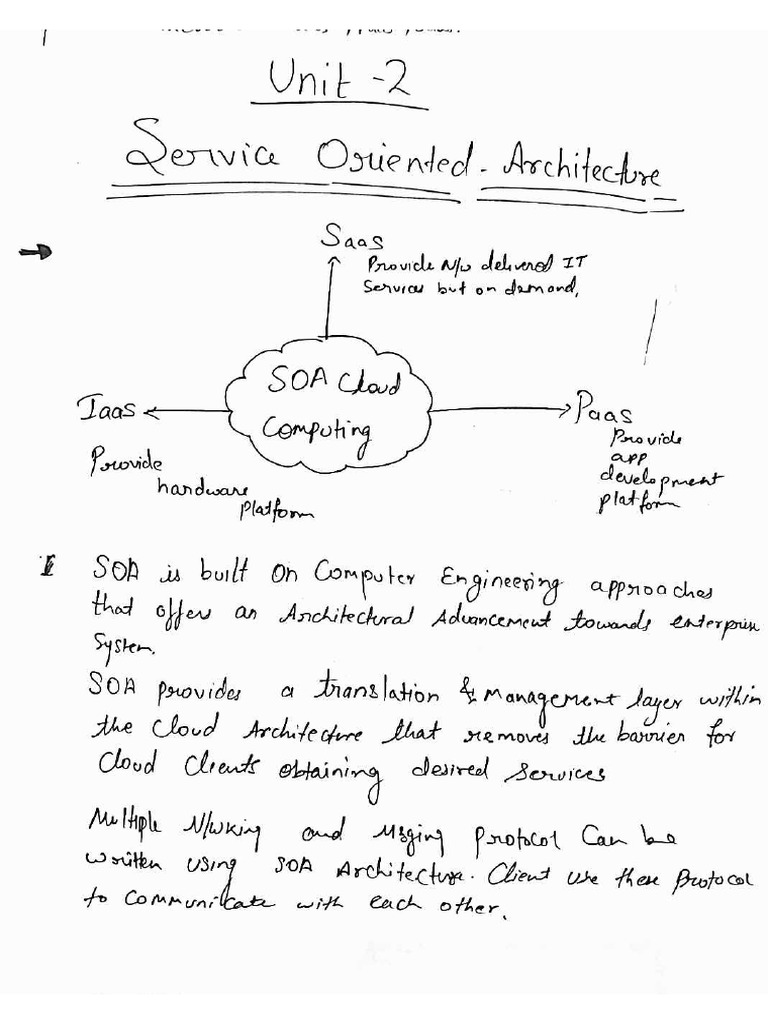 Unit -2
Service Oriented - Architecture
SaaS
Provide N/w delivered IT
Services but on demand,
SOA Cloud
Computing
IaaS
PaaS
Provide
hardware
platform
Provide
app
development
platform
SOA is built on Computer Engineering approaches
that offers an Architectural Advancement towards enterprise
System.
SOA provides a translation & management layer within
the Cloud Architecture that removes the barrier for
Cloud Clients obtaining desired services
Multiple N/wking and Msging protocol Can be
written using SOA Architecture. Client use these Protocol
to communicate with each other.